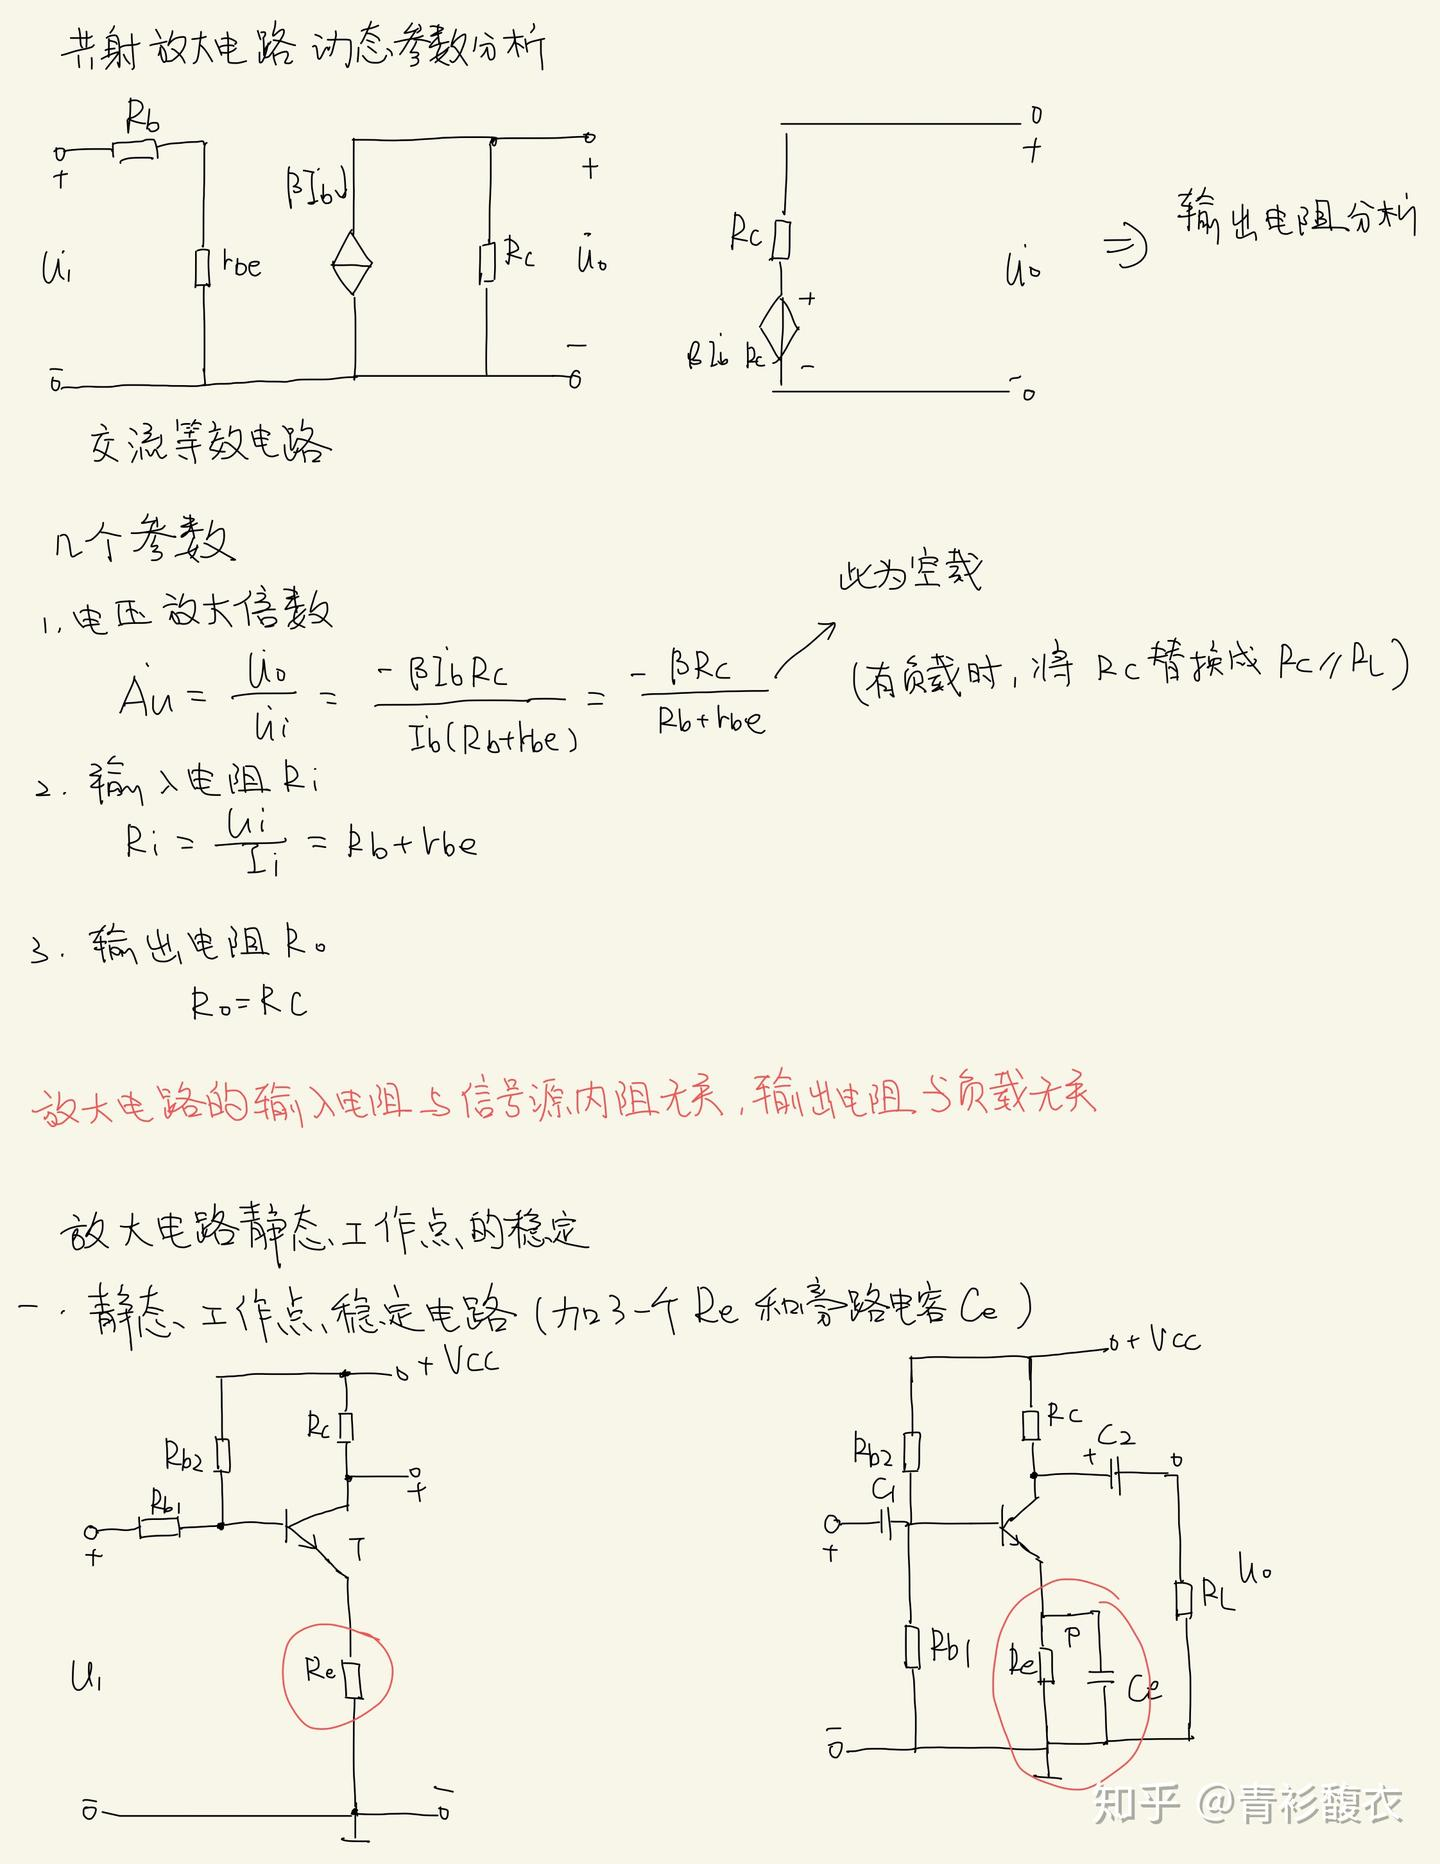 共射放大电路动态参数分析
Rb
+
+
βİb
U̇i
rbe
Rc
U̇o
-
-
+
Rc
U̇o
⇒ 输出电阻分析
+
βİb Rc
-
-
交流等效电路
几个参数
此为空载
1. 电压放大倍数
Ȧu = U̇o/U̇i = -βİbRc/İb(Rb+rbe) = -βRc/Rb+rbe
(有负载时，将 Rc替换成 Rc//RL)
2. 输入电阻Ri
Ri = Ui/Ii = Rb+rbe
3. 输出电阻Ro
Ro=Rc
放大电路的输入电阻与信号源内阻无关，输出电阻与负载无关
放大电路静态工作点的稳定
一. 静态工作点稳定电路(加了一个Re和旁路电容Ce)
+VCC
Rc
Rb2
+
Rb1
+
T
Re
U1
-
-
+VCC
Rc
Rb2
C2
+
C1
+
RL
Uo
Rb1
P
Re
Ce
-
知乎 @青衫馥衣